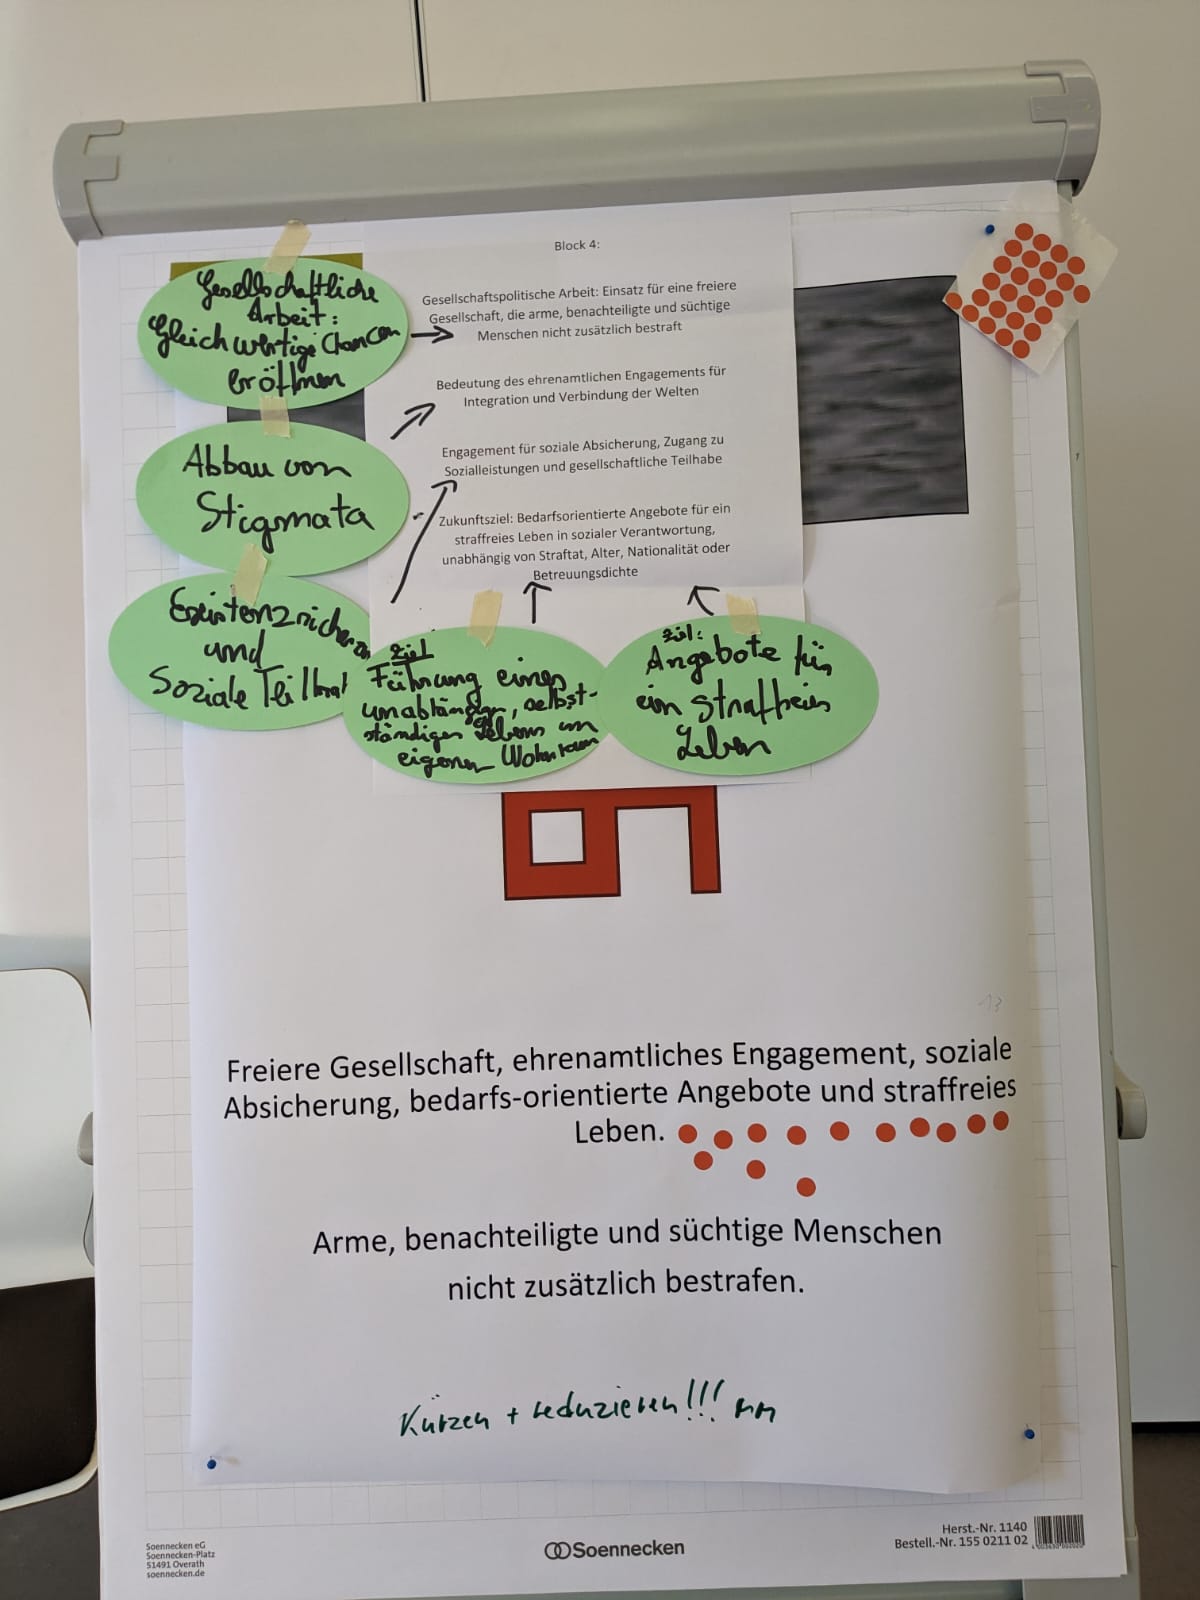 Block 4:
Gesellschaftliche
Arbeit:
Gleichwertige Chancen
eröffnen
Gesellschaftspolitische Arbeit: Einsatz für eine freiere
Gesellschaft, die arme, benachteiligte und süchtige
Menschen nicht zusätzlich bestraft
Bedeutung des ehrenamtlichen Engagements für
Integration und Verbindung der Welten
Abbau von
Stigmata
Engagement für soziale Absicherung, Zugang zu
Sozialleistungen und gesellschaftliche Teilhabe
Zukunftsziel: Bedarfsorientierte Angebote für ein
straffreies Leben in sozialer Verantwortung,
unabhängig von Straftat, Alter, Nationalität oder
Betreuungsdichte
Existenzsicherung
und
Soziale Teilhab
Ziel
Führung eines
unabhängigen, selbst-
ständigen Lebens im
eigenen Wohnraum
Ziel:
Angebote für
ein straffreies
Leben
13
Freiere Gesellschaft, ehrenamtliches Engagement, soziale
Absicherung, bedarfs-orientierte Angebote und straffreies
Leben.
Arme, benachteiligte und süchtige Menschen
nicht zusätzlich bestrafen.
Kürzen + reduzieren!!!
Soennecken eG
Soennecken-Platz
51491 Overath
soennecken.de
Soennecken
Herst.-Nr. 1140
Bestell.-Nr. 155 0211 02